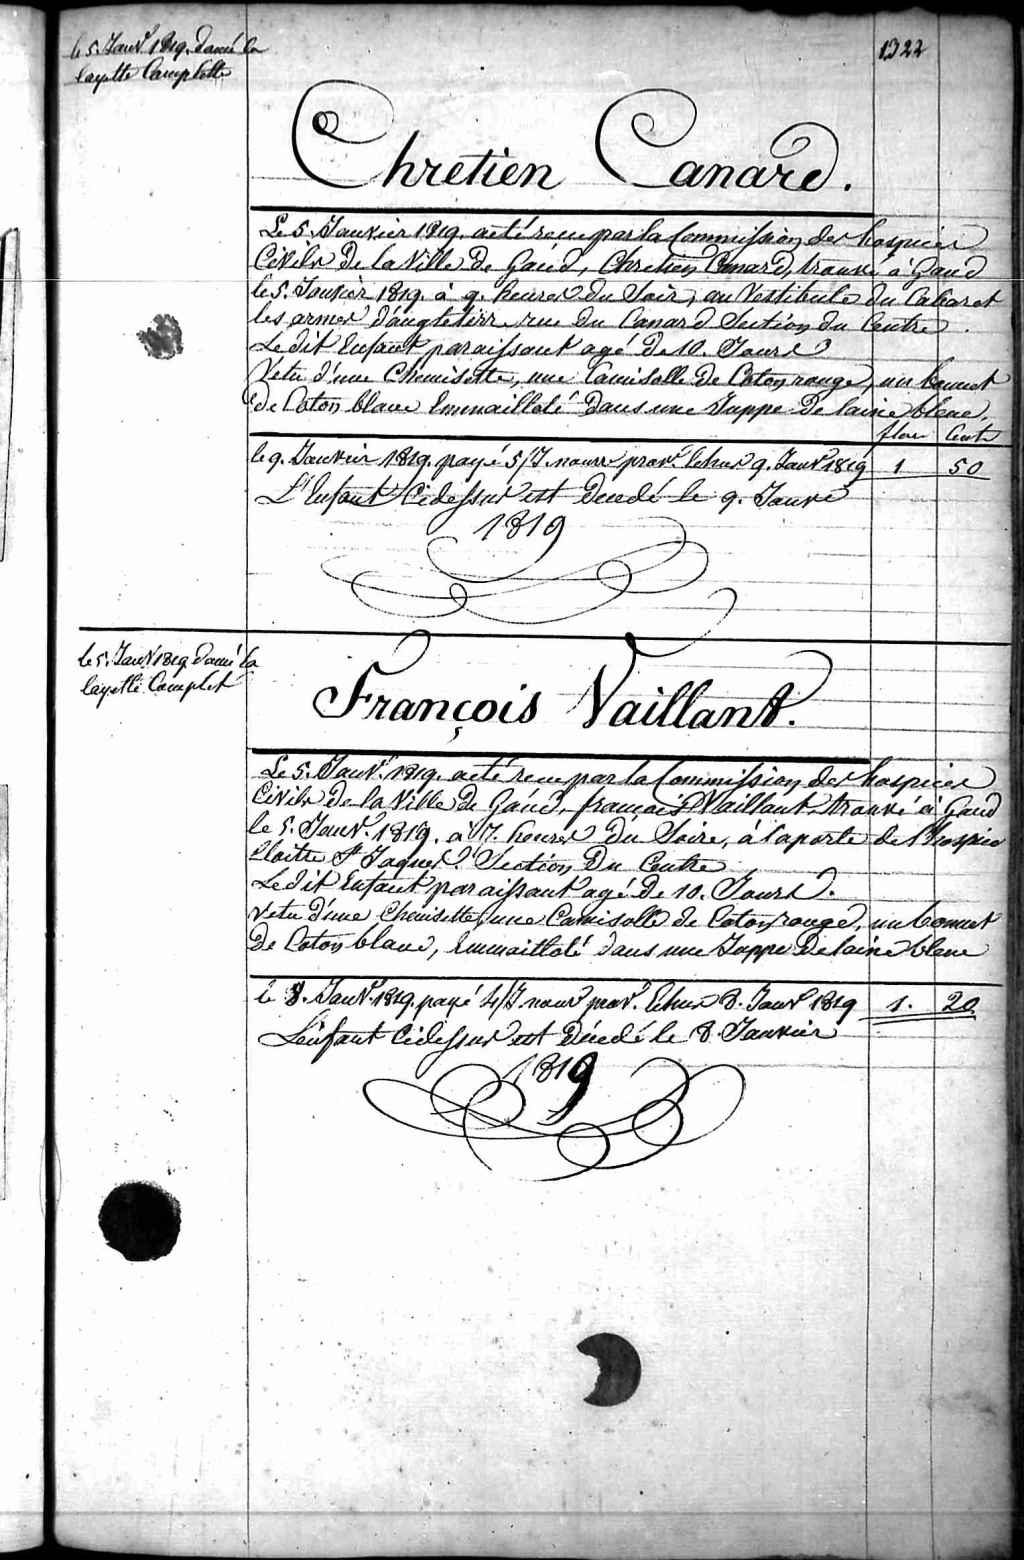 le 5. Janvr 1819. donné la
layette Complette
1322
Chretien Canard.
Le 5. Janvier 1819. a été recu par la Commission des hospices
Civils de la Ville de Gand, Chretien Canard, trouvé à Gand
le 5. Janvier 1819. à 9. heures du Soir, au Vestibule du Cabaret
les armes d'angleterre rue du Canard Section du Centre.
Le dit Enfant paraissant agé De 10. Jours
Vetu d'une Chemisette, une Camisolle de Coton rouge, un bonnet
de Coton blanc Emmailloté dans une Juppe de laine bleue.
flor Cents
le 9. Janvier 1819. payé 5/J. nourr provre Echus 9. Janvr 1819 1 50
L'Enfant Cidessus est Decedé le 9. Janvr
1819
le 5. Janvr 1819 donné la
layette Complet
François Vaillant.
Le 5. Janvr. 1819. a été recu par la Commission des hospices
Civils de la Ville de Gand, françois Vaillant, trouvé à Gand
le 5. Janvr. 1819. à 7. heures du Soire, à la porte de l'hospice
Cloitre St Jaques. Section Du Centre
Le dit Enfant paraissant agé De 10. Jours.
Vetu d'une Chemisette, une Camisolle de Coton rouge, un bonnet
De Coton blanc, Emmailloté dans une Juppe De laine bleue
le 8. Janvr 1819. payé 4/J nourr provr. Echus 8. Janvr 1819 1. 20
L'enfant Cidessus est Décedé le 8. Janvier
1819